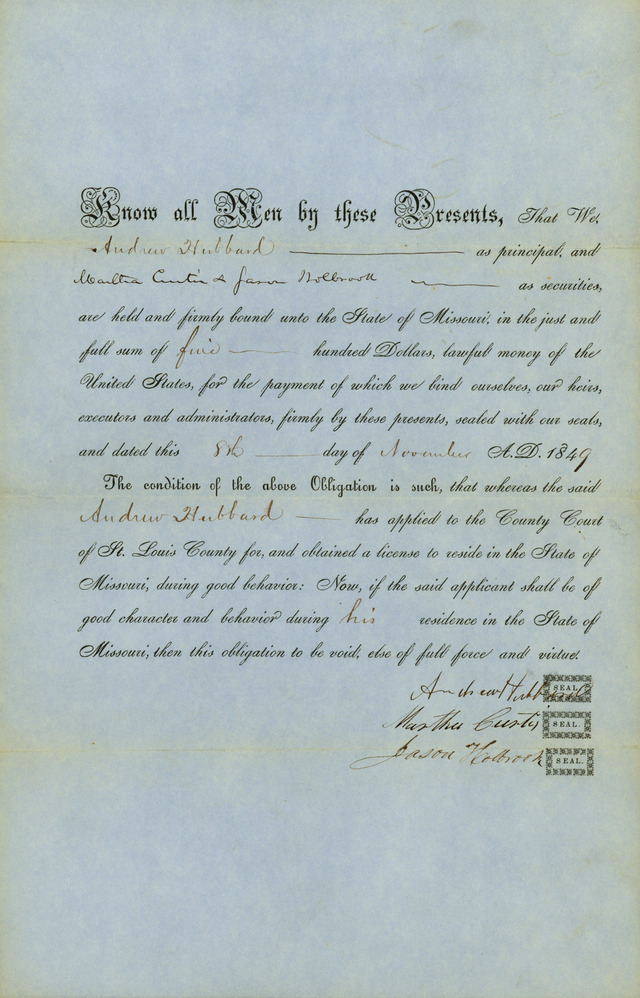 Know all Men by these Presents, That We,
Andrew Hubbard as principal, and
Martha Curtis & Jason Holbrook as securities,
are held and firmly bound unto the State of Missouri, in the just and
full sum of five hundred Dollars, lawful money of the
United States, for the payment of which we bind ourselves, our heirs,
executors and administrators, firmly by these presents, sealed with our seals,
and dated this 8th day of November A.D. 1849
The condition of the above Obligation is such, that whereas the said
Andrew Hubbard has applied to the County Court
of St. Louis County for, and obtained a license to reside in the State of
Missouri, during good behavior: Now, if the said applicant shall be of
good character and behavior during his residence in the State of
Missouri, then this obligation to be void, else of full force and virtue.
Andrew Hubbard SEAL.
Martha Curtis SEAL.
Jason Holbrook SEAL.